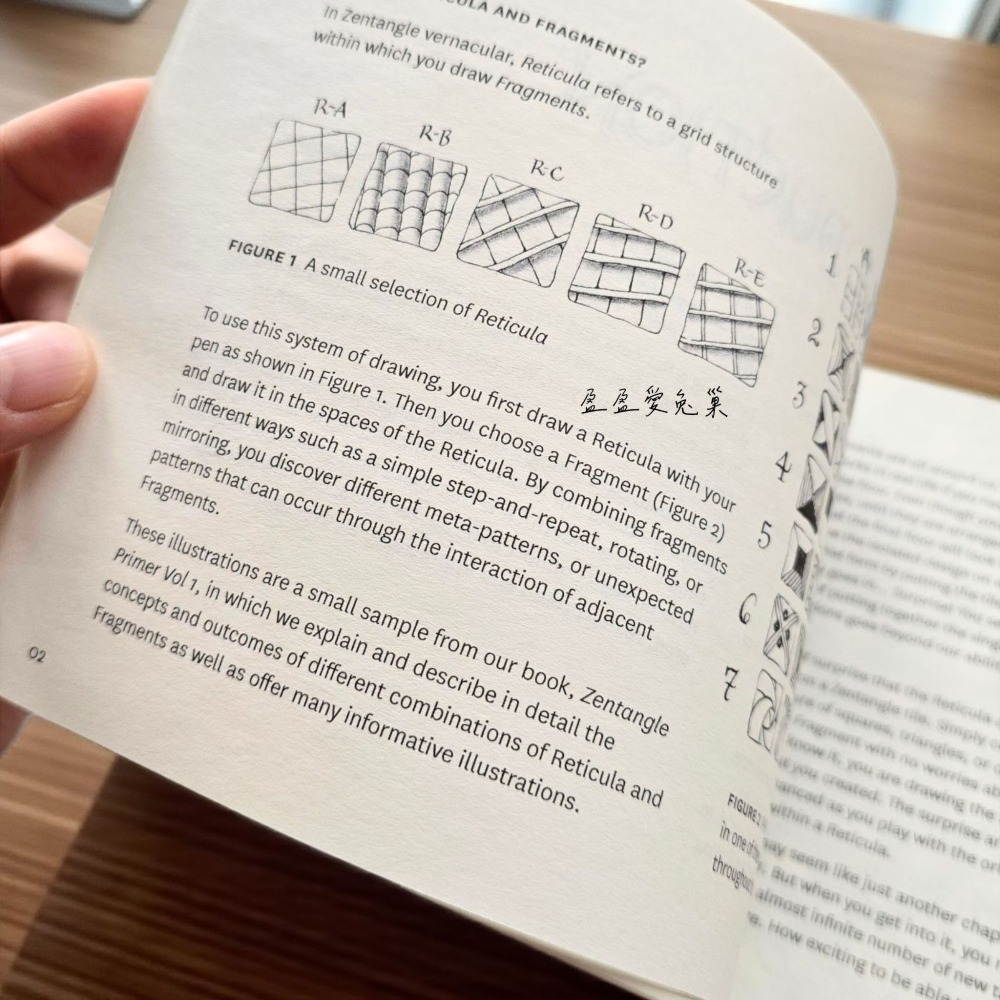 AND FRAGMENTS?
In Zentangle vernacular, Reticula refers to a grid structure
within which you draw Fragments.
R-A
R-B
R-C
R-D
R-E
FIGURE 1 A small selection of Reticula
盈盈愛兔巢
To use this system of drawing, you first draw a Reticula with your
pen as shown in Figure 1. Then you choose a Fragment (Figure 2)
and draw it in the spaces of the Reticula. By combining fragments
in different ways such as a simple step-and-repeat, rotating, or
mirroring, you discover different meta-patterns, or unexpected
patterns that can occur through the interaction of adjacent
Fragments.
These illustrations are a small sample from our book, Zentangle
Primer Vol 1, in which we explain and describe in detail the
concepts and outcomes of different combinations of Reticula and
Fragments as well as offer many informative illustrations.
02
A
1
2
3
4
5
6
7
FIGURE 2
in one of
throughout
surprise that the Reticula
a Zentangle tile. Simply
of squares, triangles, or
Fragment with no worries
know it, you are drawing the
you created. The surprise
as you play with the
within a Reticula.
may seem like just another
But when you get into it, you
almost infinite number of new
How exciting to be able